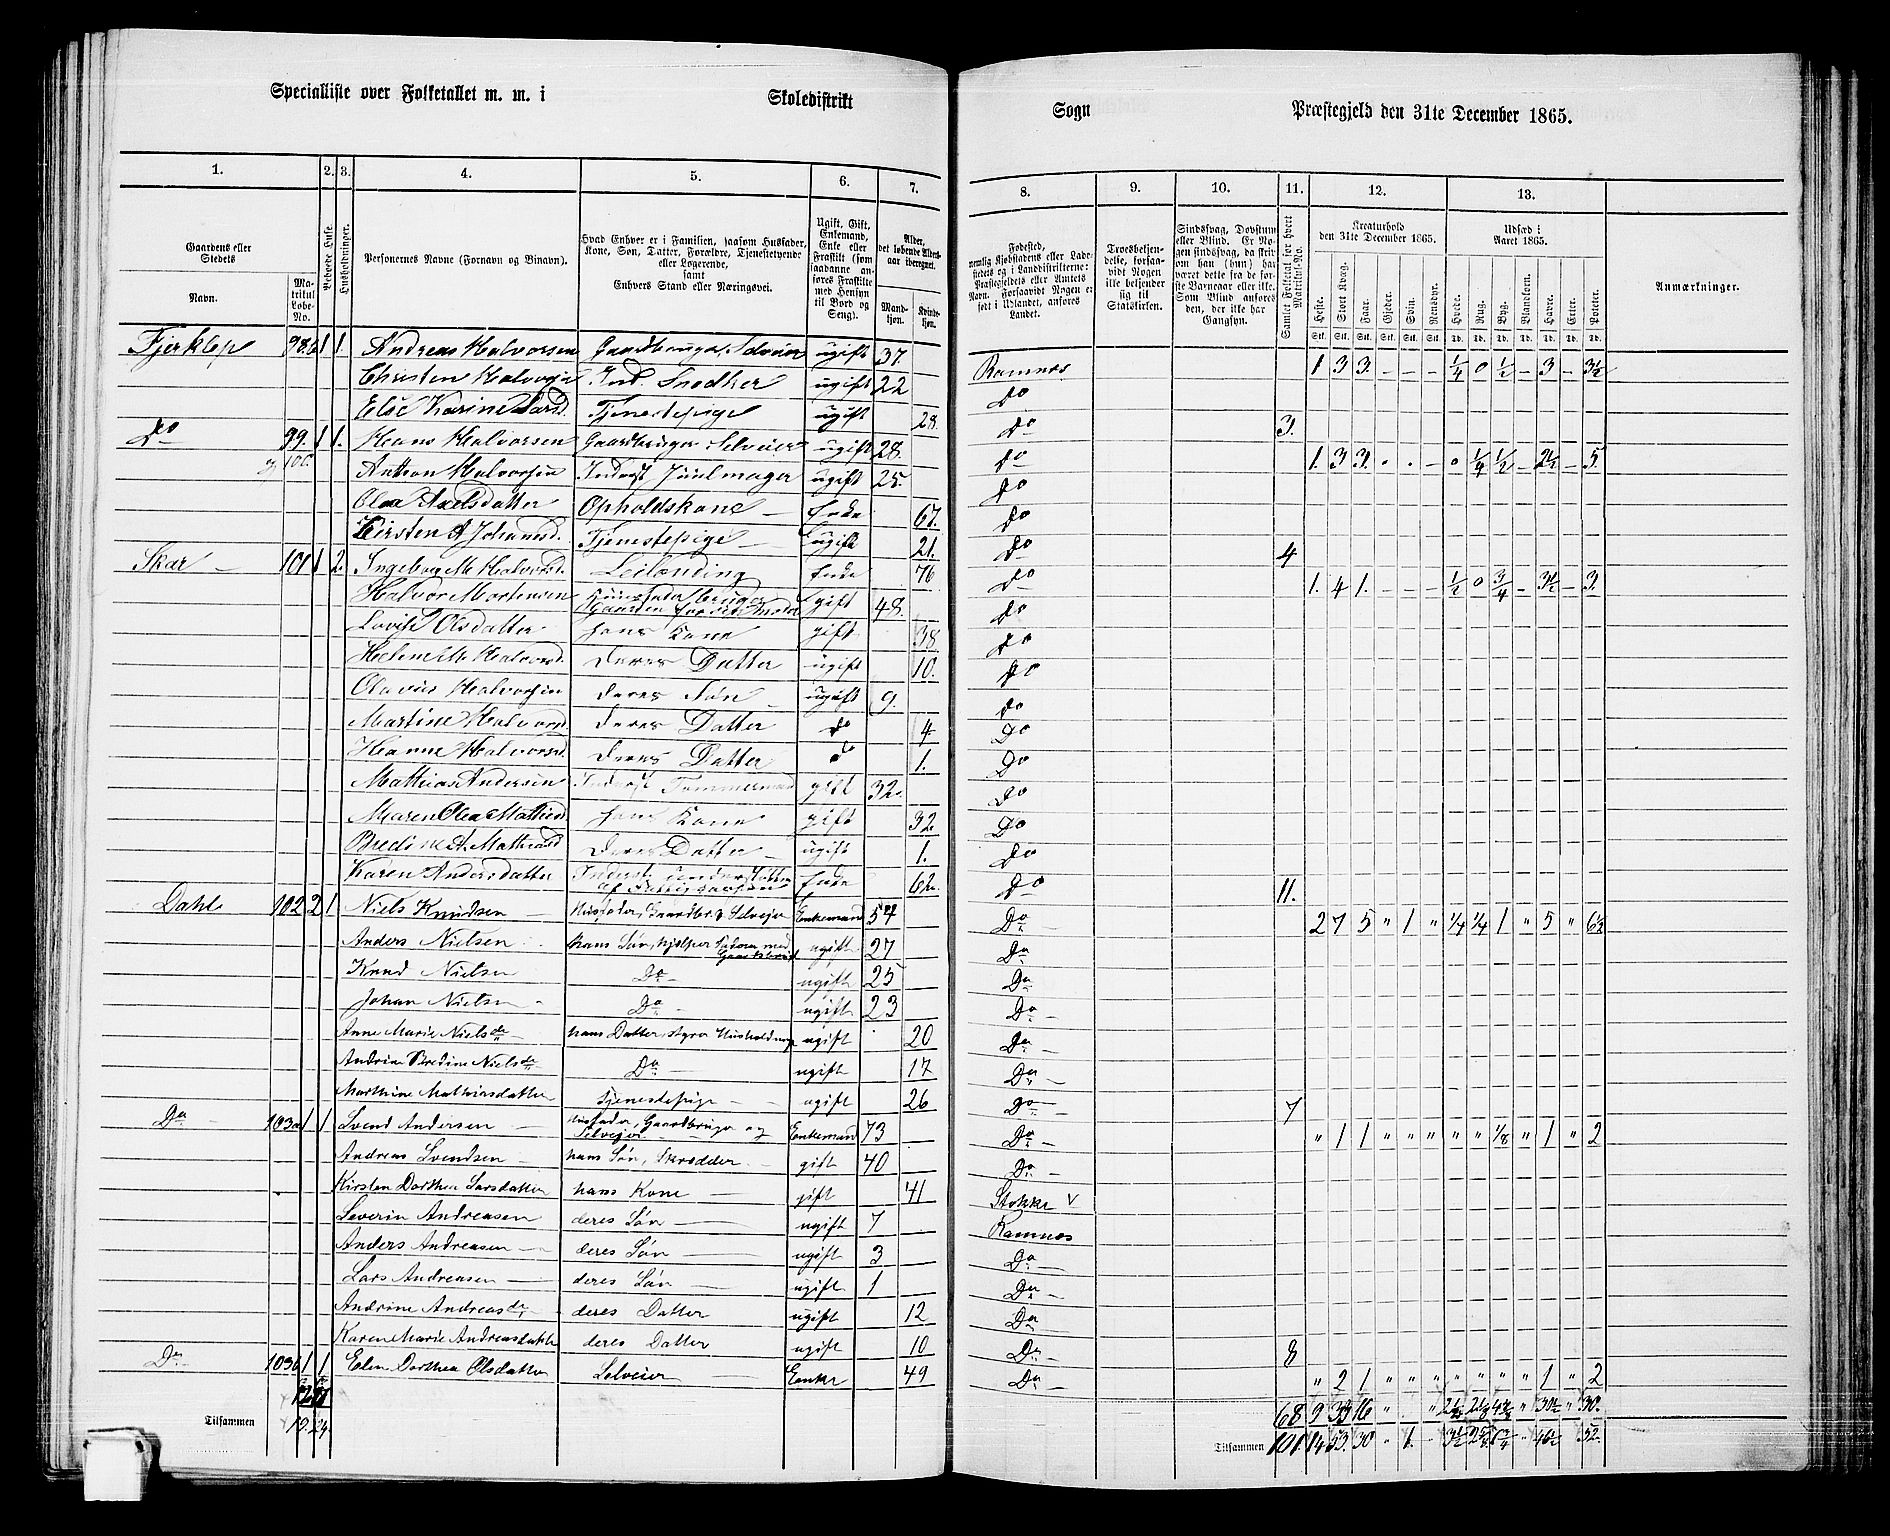 Specialliste over Folketallet m. m. i Skoledistrikt Sogn Præstegjeld den 31te December 1865.
1. 2. 3. 4. 5. 6. 7. 8. 9. 10. 11. 12. 13.
Gaardens eller Stedets
Navn.
Matrikul Løbe-No.
Beboede Huse.
Husholdninger.
Personernes Navne (Fornavn og Binavn).
Hvad Enhver er i Familien, saasom Husfader, Kone, Søn, Datter, Forældre, Tjenestetyende eller Logerende, samt Enhvers Stand eller Næringsvei.
Ugift, Gift, Enkemand, Enke eller Fraskilt (som saadanne anføres Fraskilte med Hensyn til Bord og Seng).
Alder, det løbende Aldersaar iberegnet.
Mandkjøn. Kvindekjøn.
Fødested, nemlig Kjøbstadens eller Ladestedets og i Landdistrikterne: Præstegjeldets eller Amtets Navn. Forsaavidt Nogen er født i Udlandet, anføres Landet.
Troesbekjendelse, forsaavidt Nogen ikke bekjender sig til Statskirken.
Sindssvag, Døvstum eller Blind. Er Nogen sindssvag, da skriv om han (hun) har været dette fra de første Barneaar eller ikke. Som Blind anføres den, der ikke har Gangsyn.
Samlet Folketal for hvert Matrikul-No.
Kreaturhold den 31te December 1865.
Heste. Stort Kvæg. Faar. Gjeder. Svin. Rensdyr.
Udsæd i Aaret 1865.
Hvede. Rug. Byg. Blandkorn. Havre. Erter. Poteter.
Anmærkninger.
Fjerklep 98. 1 1. Andreas Halvorsen Gaardbruger, Selveier ugift 37 Ramnes 1. 3 3. - - - 1/4 0 1/2 - 3 - 3 1/2
Christen Halvorsen Ind. Snedker ugift 22 Do
Else Karine Larsd. Tjenestepige ugift 28. Do 3.
Do 99. 1 1. Hans Halvorsen Gaardbruger, Selveier ugift 28. Do 1. 3 3. - - - 0 1/4 1/2 - 2 1/2 - 5.
100. Anthon Halvorsen Inderst Juulmager ugift 25. Do
Olea Axelsdatter Opholdskone - Enke 67. Do
Kirsten A Johannesd. Tjenestepige - ugift 21. Do 4
Skar - 101 1 2. Ingeborg M. Halvorsd. Leilending Enke 76 Do 1. 4 1. - - - 1/2 0 3/4 - 3 1/2 - 3.
Halvor Mortensen Huusfader bruger Gaarden for sin Moder gift 48. Do
Lovise Olsdatter hans Kone gift 38 Do
Helene M. Halvorsd. deres Datter ugift 10. Do
Olavus Halvorsen deres Søn - ugift 9. Do
Martine Halvorsd. deres Datter do 4 Do
Hanne Halvorsd. deres Datter do 1. Do
Mathias Andersen Inderst Tømmermand gift 32. Do
Maren Olea Mathiesd. hans Kone gift 32 Do
Bredine A. Mathiasd. deres Datter - ugift 1. Do
Karen Andersdatter Inderst understøttes af Fattigkassen Enke 62. Do 11.
Dahl 102 2 1 Niels Knudsen - Husfader, Gaardbr. & Selveier Enkemand 57 Do 2 7 5 " 1 " 1/4 1/4 1 " 5 " 6 1/2
Anders Nielsen - hans Søn, hjelper Faderen med Gaardsbrug ugift 27 Do
Knud Nielsen Do - ugift 25 Do
Johan Nielsen - Do - ugift 23 Do -
Anne Marie Nielsda hans Datter, styrer Husholdningen ugift 20 Do -
Andrine Bredine Nielsda Do - ugift 17 Do -
Marthine Mathiasdatter Tjenestepige - ugift 26 Do - 7
Do - 103a 1 1 Svend Andersen - Husfader, Gaardbruger og Selveier - Enkemand 73 Do - " 1 1 " " " " " 1/8 " 1 " 2
Andreas Svendsen - hans Søn, Skrædder - gift 40 Do -
Kirsten Dorthea Larsdatter hans Kone - gift 41 Stokke V
Severin Andreasen deres Søn - ugift 7 Ramnes
Anders Andreasen - deres Søn - ugift 3 Do
Lars Andreasen - deres Søn - ugift 1 Do -
Andrine Andreasda - deres Datter ugift 12 Do -
Karen Marie Andreasdatter deres Datter ugift 10 Do - 8
Do - 103b 1 1 Elen Dorthea Olsdatter Selveier Enke 49 Do - " 2 1 " " " " " " " 1 " 2
68 9 33 16
Tilsammen 19. 24. Tilsammen 101. 14 53. 30 " 1. - 52.